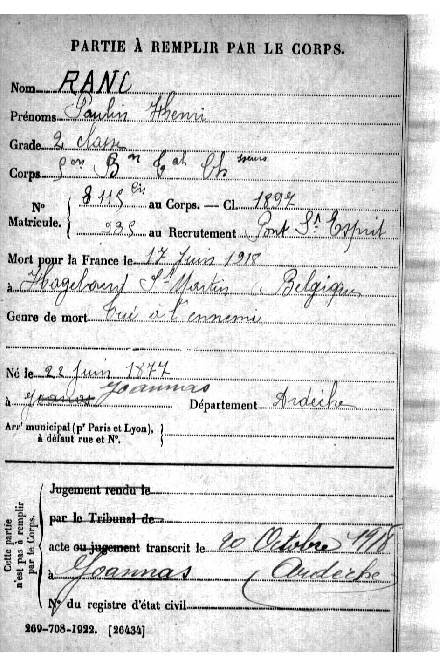 PARTIE À REMPLIR PAR LE CORPS.
Nom RANC
Prénoms Paulin Henri
Grade 2 classe
Corps 5 Bn
N° 8115 au Corps. — Cl. 1897
Matricule. 935 au Recrutement Pont St Esprit
Mort pour la France le 17 Juin 1918
à St Martin, Belgique
Genre de mort Tué à l'ennemi
Né le 22 Juin 1877
à Joannas Département Ardèche
Arrt municipal (pr Paris et Lyon), à défaut rue et N°.
Cette partie n'est pas à remplir par le Corps.
Jugement rendu le
par le Tribunal de
acte ou jugement transcrit le 20 Octobre 1918
à Joannas (Ardèche)
N° du registre d'état civil
269-708-1922. [26434]